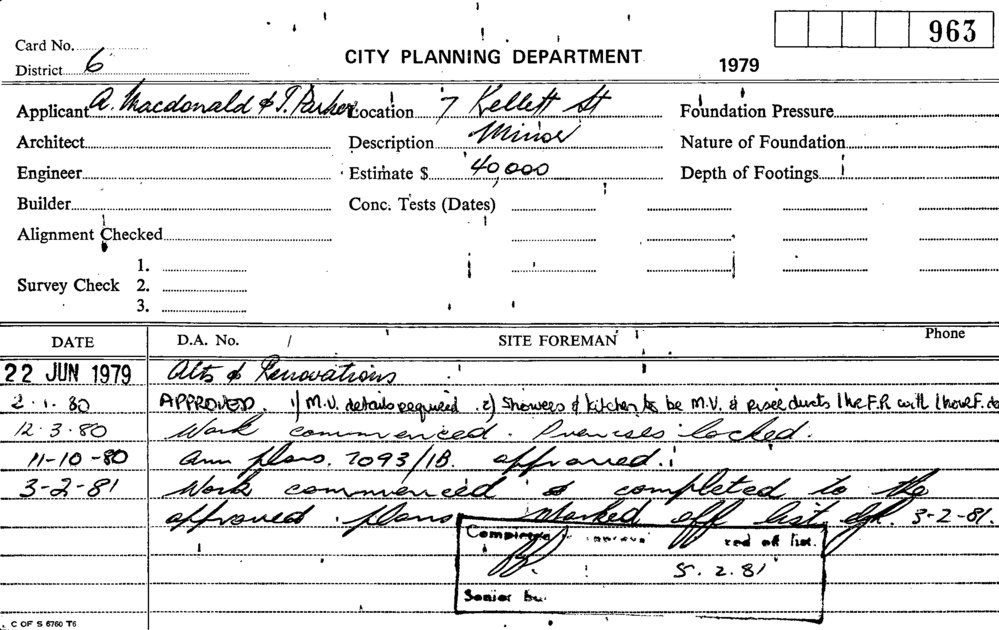 963
Card No.
CITY PLANNING DEPARTMENT
District 6
1979
Applicant A. Macdonald & T. Parker Location 7 Kellett St Foundation Pressure
Architect Description Minor Nature of Foundation
Engineer Estimate $ 40,000 Depth of Footings
Builder Conc. Tests (Dates)
Alignment Checked
1.
Survey Check 2.
3.
DATE D.A. No. / SITE FOREMAN Phone
22 JUN 1979 Alts & Renovations
2.1.80 APPROVED. 1) M.V. details required. 2) Showers & kitchen to be M.V. & riser ducts 1hr F.R. with 1 hour F.
12.3.80 Work commenced. Premises locked.
11-10-80 Am plans. 7093/1B. approved.
3-2-81 Work commenced & completed to the
approved plans. Marked off list. 3-2-81.
Completed off list.
5.2.81
Senior
C OF S 6760 T6